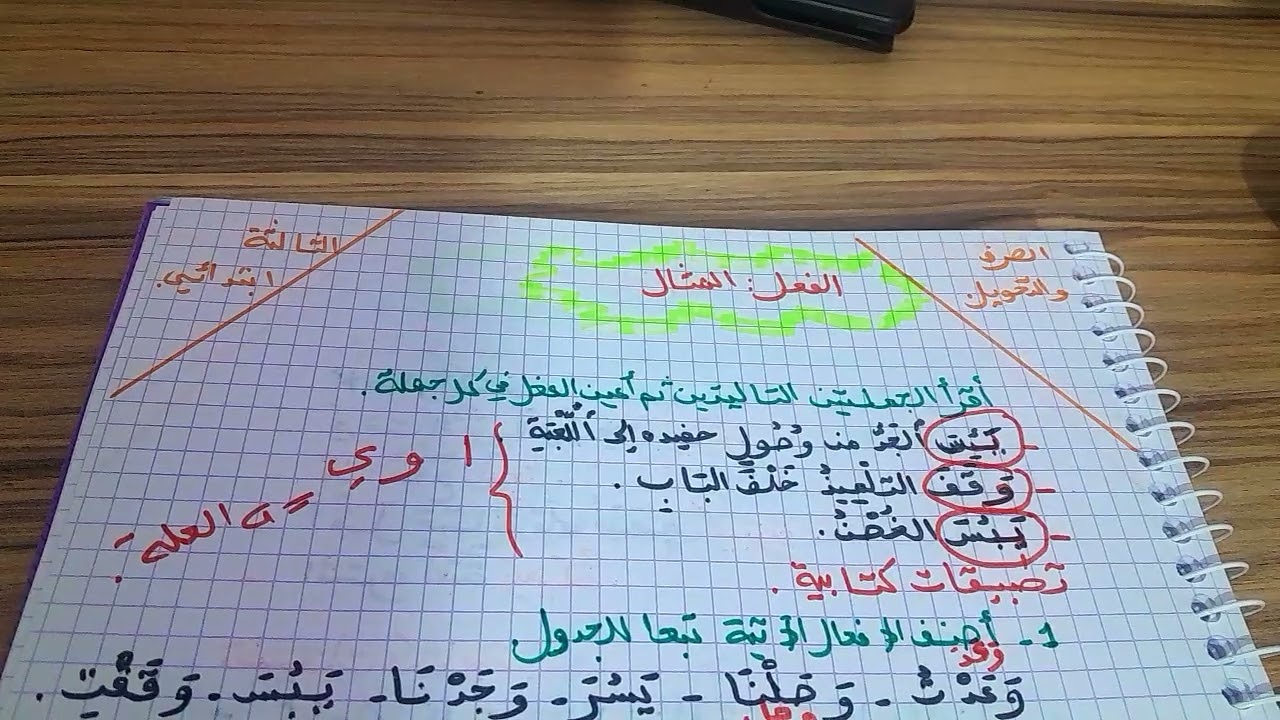 الصرف
والتحويل
الفعل: المثال
الثالثة
ابتدائي.
أقرأ الجملتين التاليتين ثم أعين الفعل في كل جملة.
- يَئِسَ الجَدُّ من وُصُولِ حفيده إلى
- وَقَفَ التِّلْمِيذُ خَلْفَ البَابِ.
- يَبِسَ الغُصْنُ.
ا و ي
العلة:
تطبيقات كتابية.
1- أصنف الأفعال الآتية تبعا للجدول.
وَعَدَ
وَعَدْتُ - وَصَلْنَا - يَسُرَ - وَجَدْنَا - يَبِسَ - وَقَفْتِ.